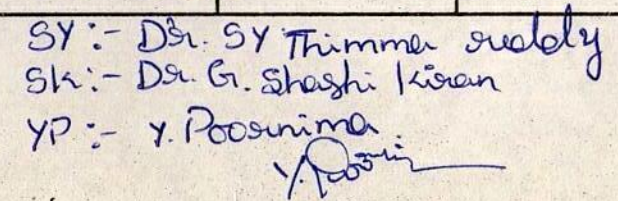 SY :- Dr. SY Thimma reddy
Sk :- Dr. G. Shashi kiran
YP :- Y. Poornima
Y. Poorni